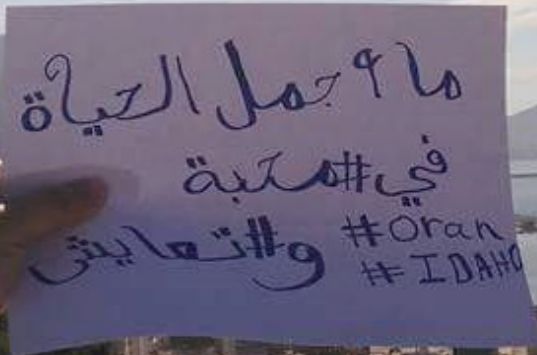 ما أجمل الحياة
في #محبة
و#تعايش
#Oran
#IDAHO